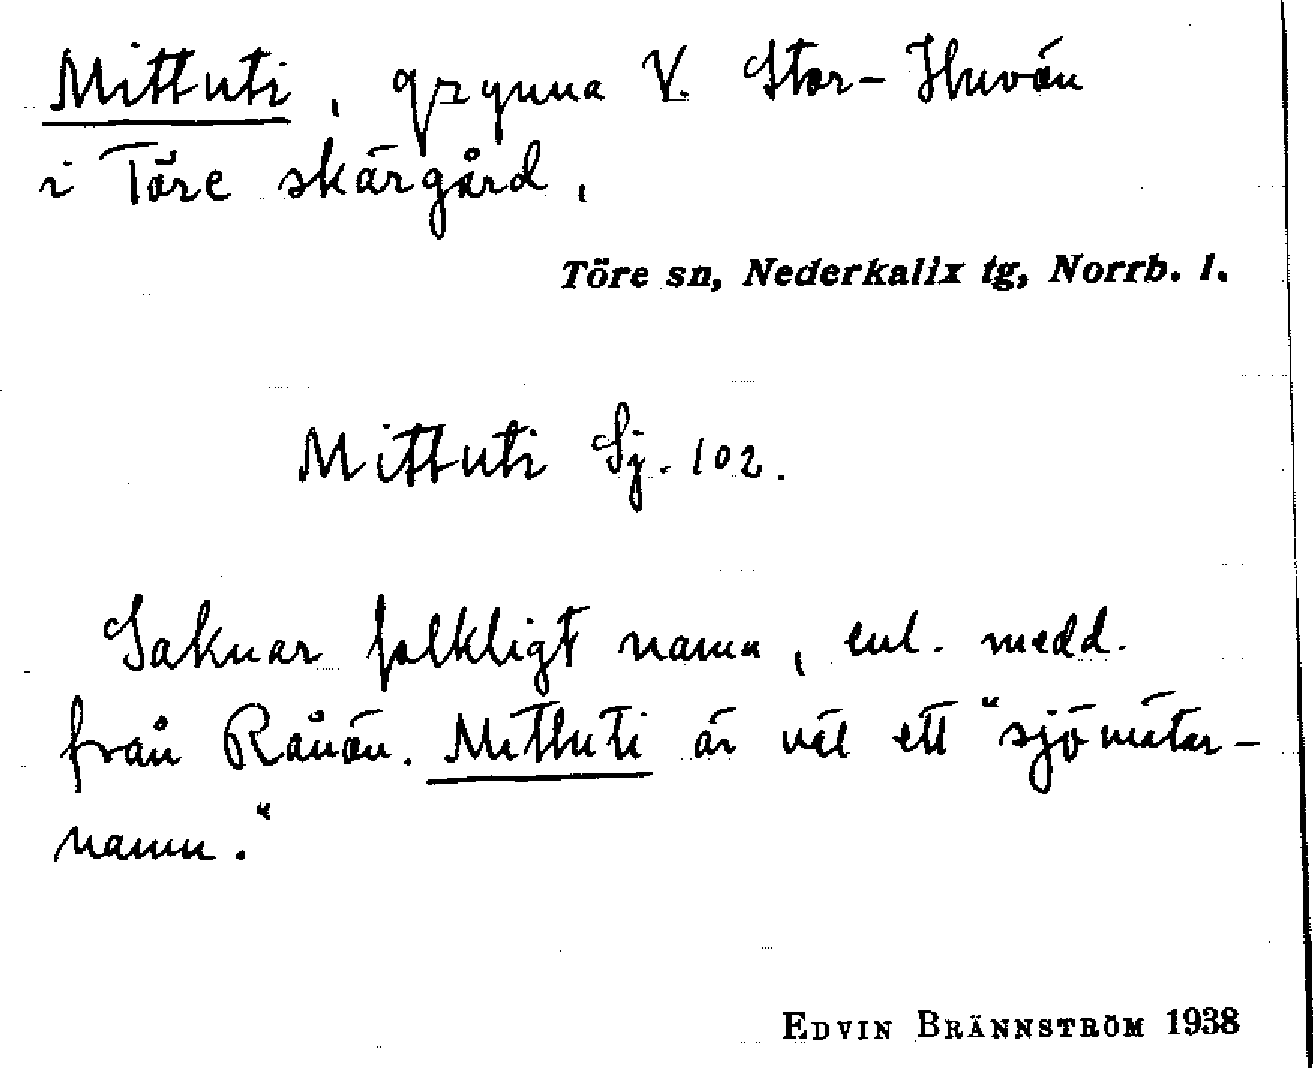 Mittuti, grynna V. Stor-Huvön
i Töre skärgård.
Töre sn, Nederkalix tg, Norrb. l.
Mittuti Sj. 102.
Saknar folkligt namn, enl. medd.
från Rånön. Mittuti är väl ett "sjömätar-
namn."
EDVIN BRÄNNSTRÖM 1938